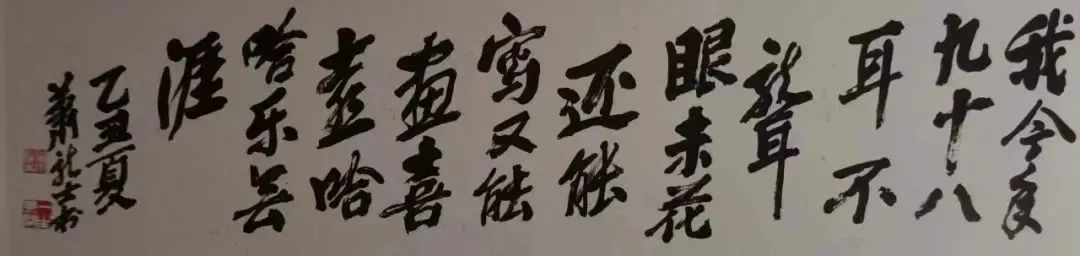 我今年
九十八
耳不
聋
眼未花
还能
写又能
畫喜
喜哈
哈乐无
涯
乙丑夏
萧龙士书